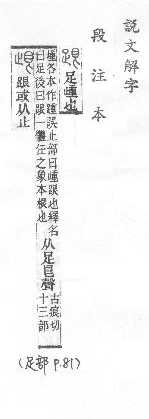 說文解字
段注本
跟 足歱也
歱各本作踵誤止部曰歱跟也釋名
曰足後曰跟一體任之象本根也
从足㫐聲
古痕切
十三部
跟或从止
(足部 p.81)